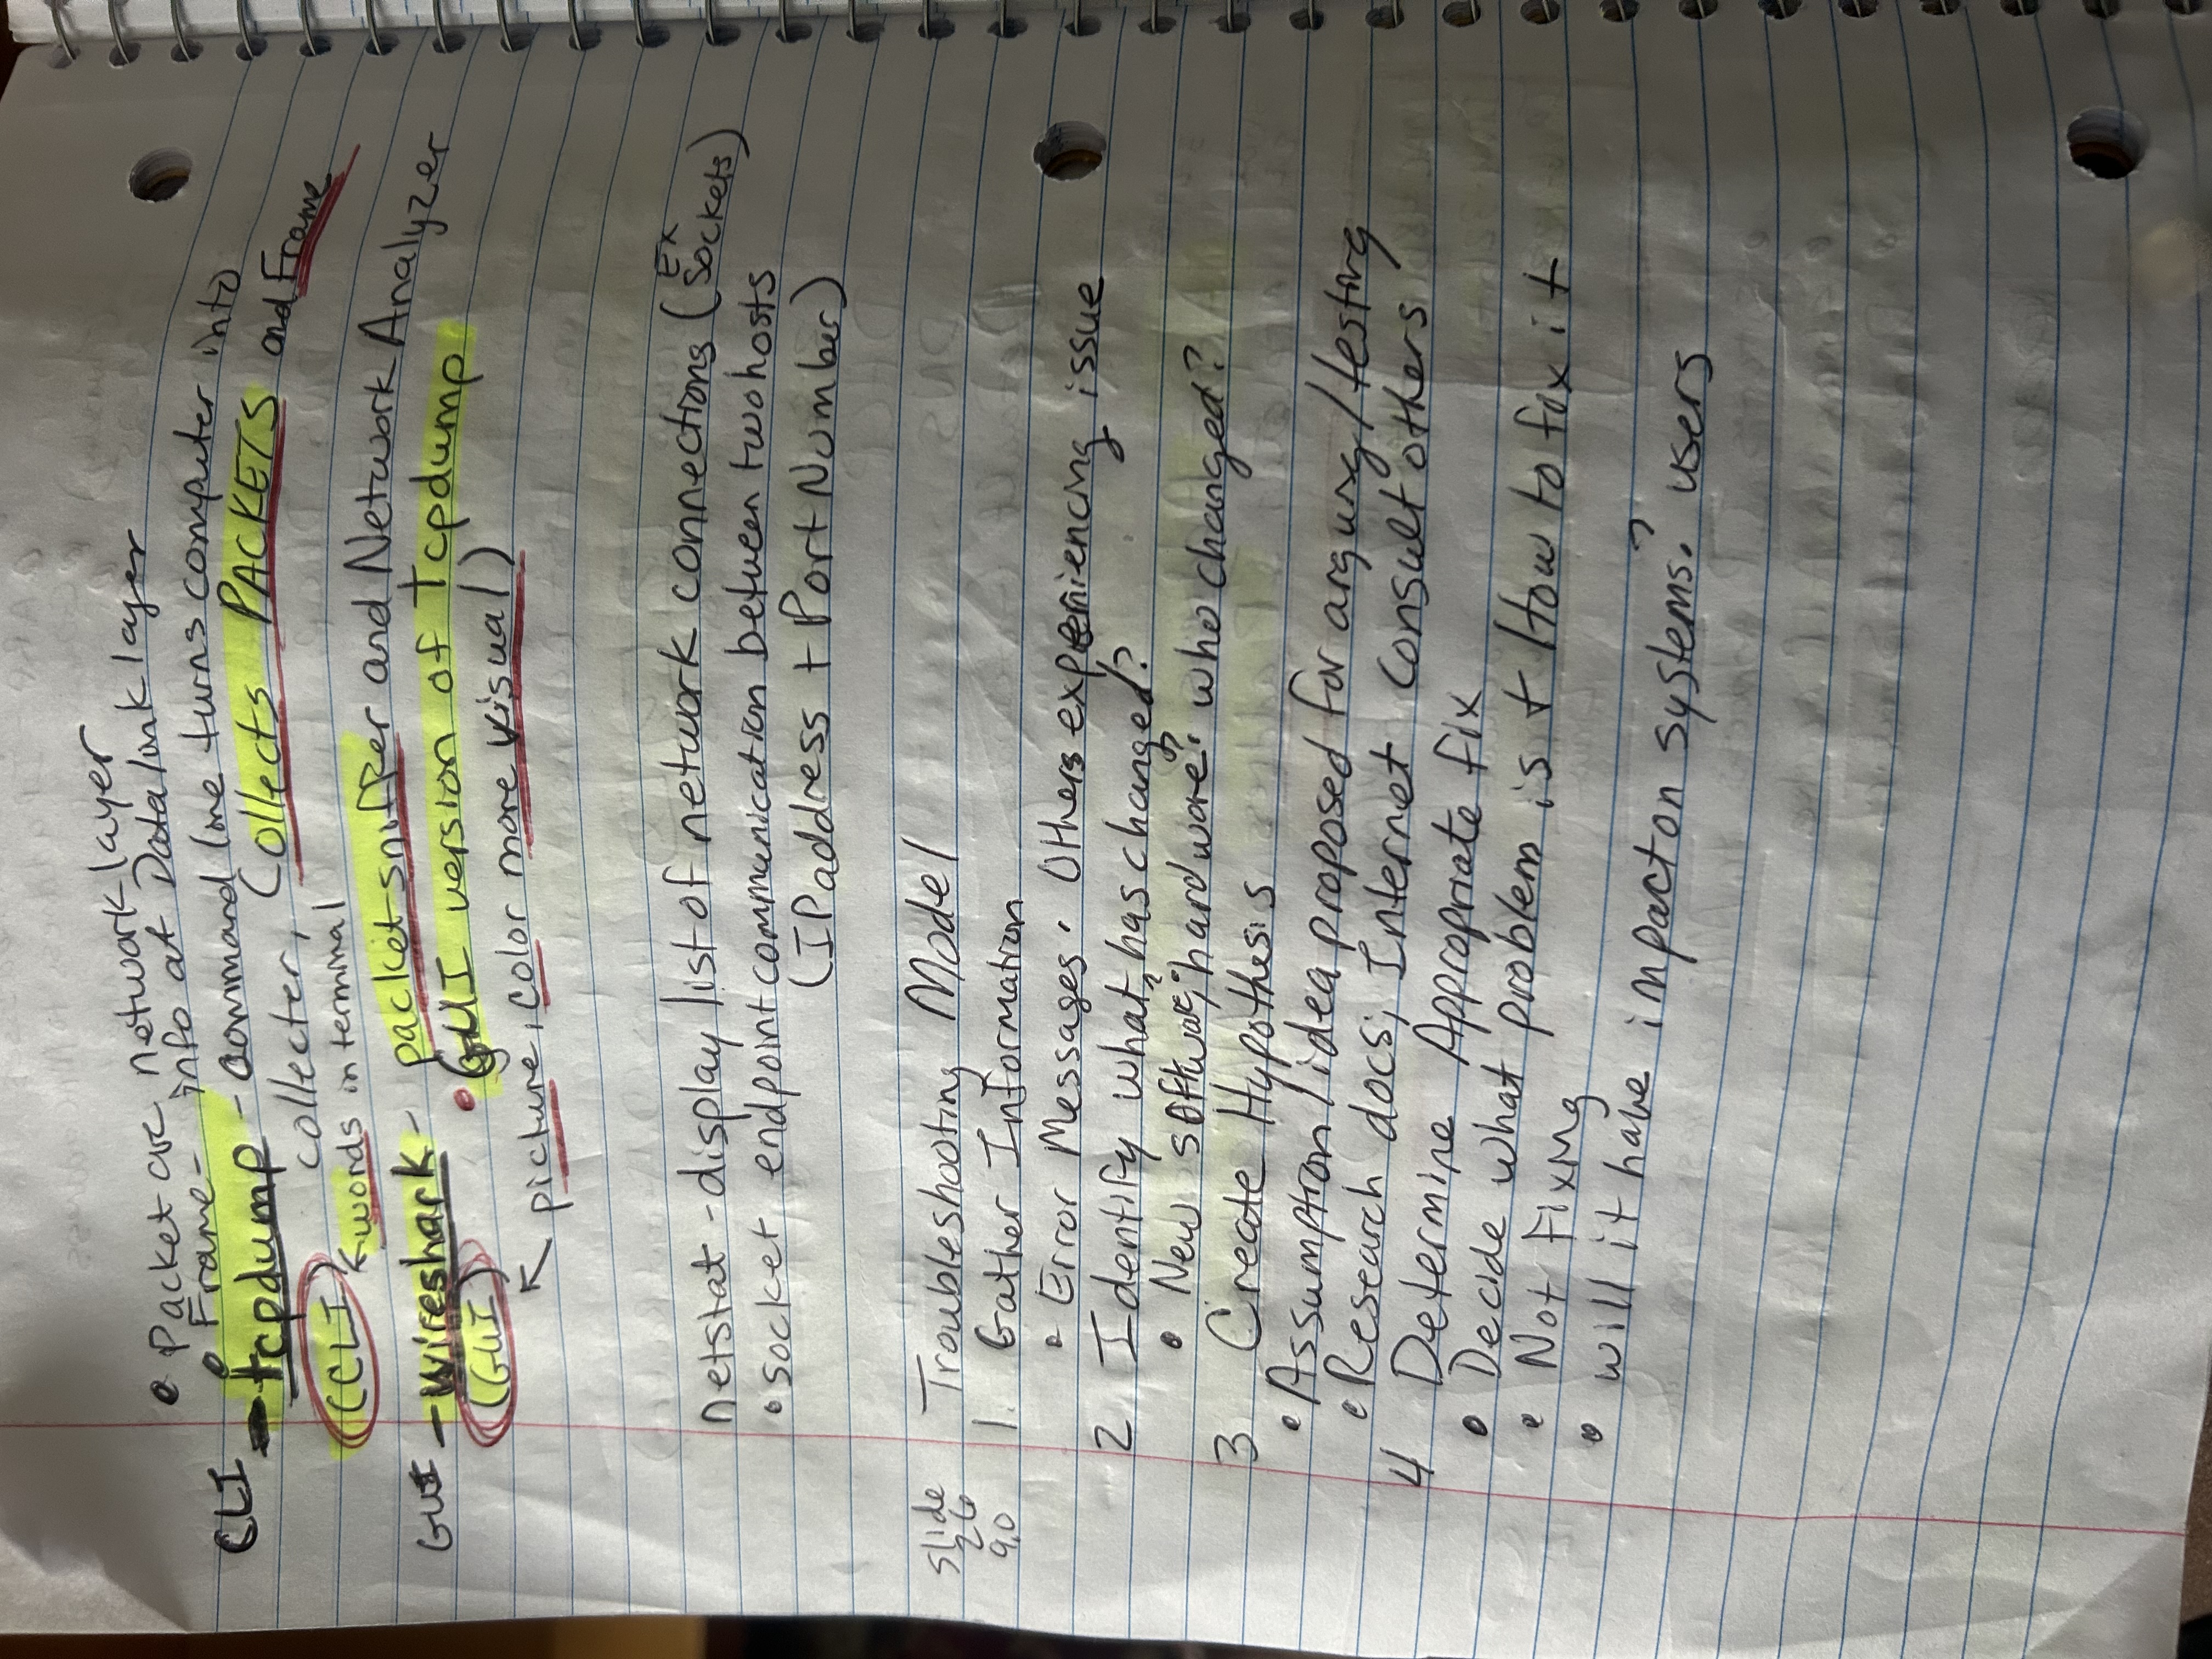 • Packet are network layer
• Frame - info at Datalink layer
CLI - tcpdump - command line turns computer into
collecter, Collects PACKETS and Frame
(CLI) ← words in terminal
GUI - wireshark - packet sniffer and Network Analyzer
(GUI) • GUI version of Tcpdump
↖ picture, color more visual)
netstat - display list of network connections (Ex Sockets)
• socket endpoint communication between two hosts
(IP address + Port Number)
slide 26 9.0
Troubleshooting Model
1. Gather Information
• Error Messages • Others experiencing issue
2 Identify what has changed?
• New software, hardware? who changed?
3 Create Hypothesis
• Assumption/idea proposed for arguing/testing
• Research docs; Internet Consult others
4 Determine Appropriate fix
• Decide what problem is + How to fix it
• Not Fixing
• will it have impact on systems? users